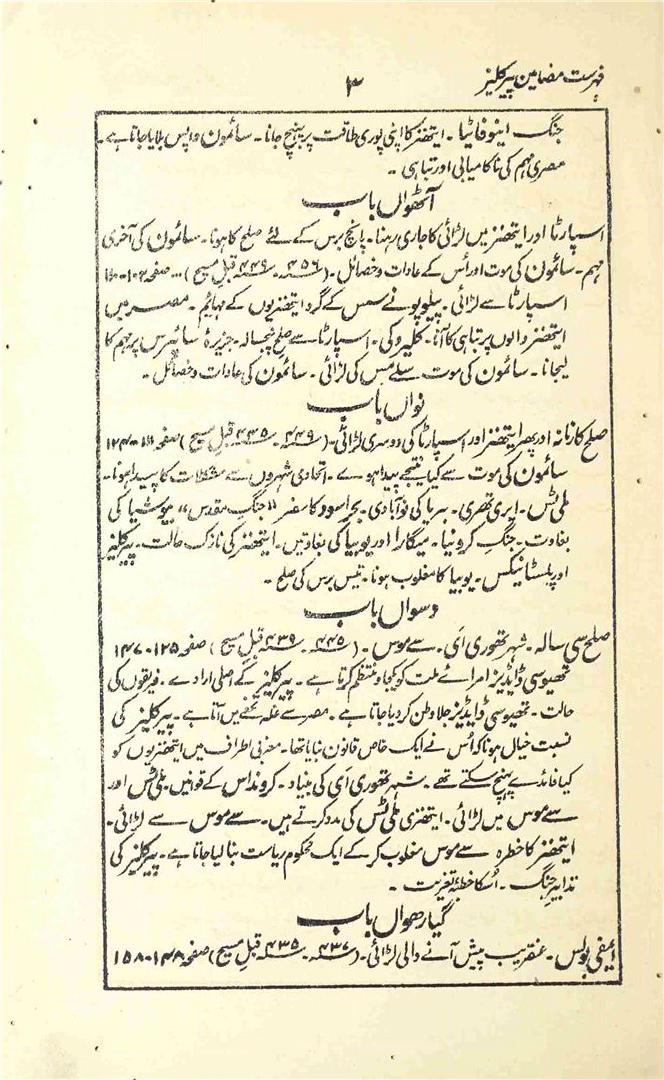 فہرست مضامین پیرکلیز
۳
جنگ اینوفائیا ۔ ایتھنز کا اپنی پوری طاقت پر پہنچ جانا ۔ سائمون واپس بلایا جاتا ہے ۔
مصری مہم کی ناکامیابی اور تباہی ۔۔
آٹھواں باب
اسپارٹا اور ایتھنز میں لڑائی کا جاری رہنا ۔ پانچ برس کے لئے صلح کا ہونا ۔ سائمون کی آخری
مہم ۔ سائمون کی موت اور اُس کے عادات و خصائل ۔ (۴۵۶ ۔ ۴۴۹ قبل مسیح) ... صفحہ ۱۰۲ ۔ ۱۱۰
اسپارٹا سے لڑائی ۔ پیلوپونے سس کے گرد ایتھنزیوں کے مہائم ۔ مصر میں
ایتھنز والوں پر تباہی کا آنا ۔ کلیروکی ۔ اسپارٹا سے صلح پنجسالہ ۔ جزیرۂ سائپرس پر مہم کا
لیجانا ۔ سائمون کی موت سلے مس کی لڑائی ۔ سائمون کی عادات و خصائل ۔
نواں باب
صلح کا زمانہ اور پھر ایتھنز اور اسپارٹا کی دوسری لڑائی ۔ (۴۴۹ ۔ ۴۴۵ قبل مسیح) صفحہ ۱۱۱ ۔ ۱۲۴
سائمون کی موت سے کیا نتیجے پیدا ہوے ۔ اتحادی شہروں سے مشکلات کا پیدا ہونا ۔
ملی ٹس ۔ ایری تھری ۔ بریا کی نوآبادی ۔ بحر اسود کا سفر "جنگ مقدس" بیوشیا کی
بغاوت ۔ جنگ کرونیا ۔ میگارا اور یوبیا کی بغاوتیں ۔ ایتھنز کی نازک حالت ۔ پیرکلیز
اور پلسٹانیکس ۔ یوبیا کا مغلوب ہونا ۔ تیس برس کی صلح ۔
دسواں باب
صلح سی سالہ ۔ شہر تھوری آی ۔ سے موس ۔ (۴۴۵ ۔ ۴۳۹ قبل مسیح) صفحہ ۱۲۵ ۔ ۱۴۷
تھیوسی ڈایڈیز امرائے ملت کو یکجا و منتظم کرتا ہے ۔ پیرکلیز کے اصلی ارادے ۔ فریقوں کی
حالت ۔ تھیوسی ڈایڈیز جلا وطن کر دیا جاتا ہے ۔ مصر سے غلہ تحفے میں آتا ہے ۔ پیرکلیز کی
نسبت خیال ہونا کہ اُس نے ایک خاص قانون بنایا تھا ۔ مغربی اطراف میں ایتھنزیوں کو
کیا فائدے پہنچ سکتے تھے ۔ شہر تھوری آی کی بنیاد ۔ کرونداس کے قوانین ۔ ملی ٹس اور
سے موس میں لڑائی ۔ ایتھنزی ملی ٹس کی مدد کرتے ہیں ۔ سے موس سے لڑائی ۔
ایتھنز کا خطرہ سے موس مغلوب کر کے ایک محکوم ریاست بنا لیا جاتا ہے ۔ پیرکلیز کی
تدابیر جنگ ۔ اُسکا خطبۂ تعزیت ۔
گیارھواں باب
ایمفی پولس ۔ عنقریب پیش آنے والی لڑائی ۔ (۴۳۷ ۔ ۴۳۵ قبل مسیح) صفحہ ۱۴۸ ۔ ۱۵۸